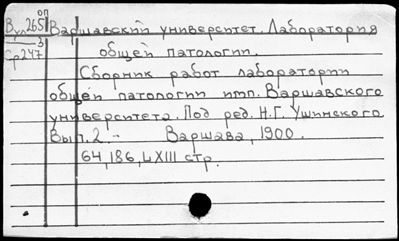 оп
Вул265 Варшавский университет. Лаборатория
3
Ср247 общей патологии.
Сборник работ лаборатории
общей патологии имп. Варшавского
университета. Под ред. Н.Г. Ушинского
Вып. 2. - Варшава, 1900.
64, 186, LXIII стр.